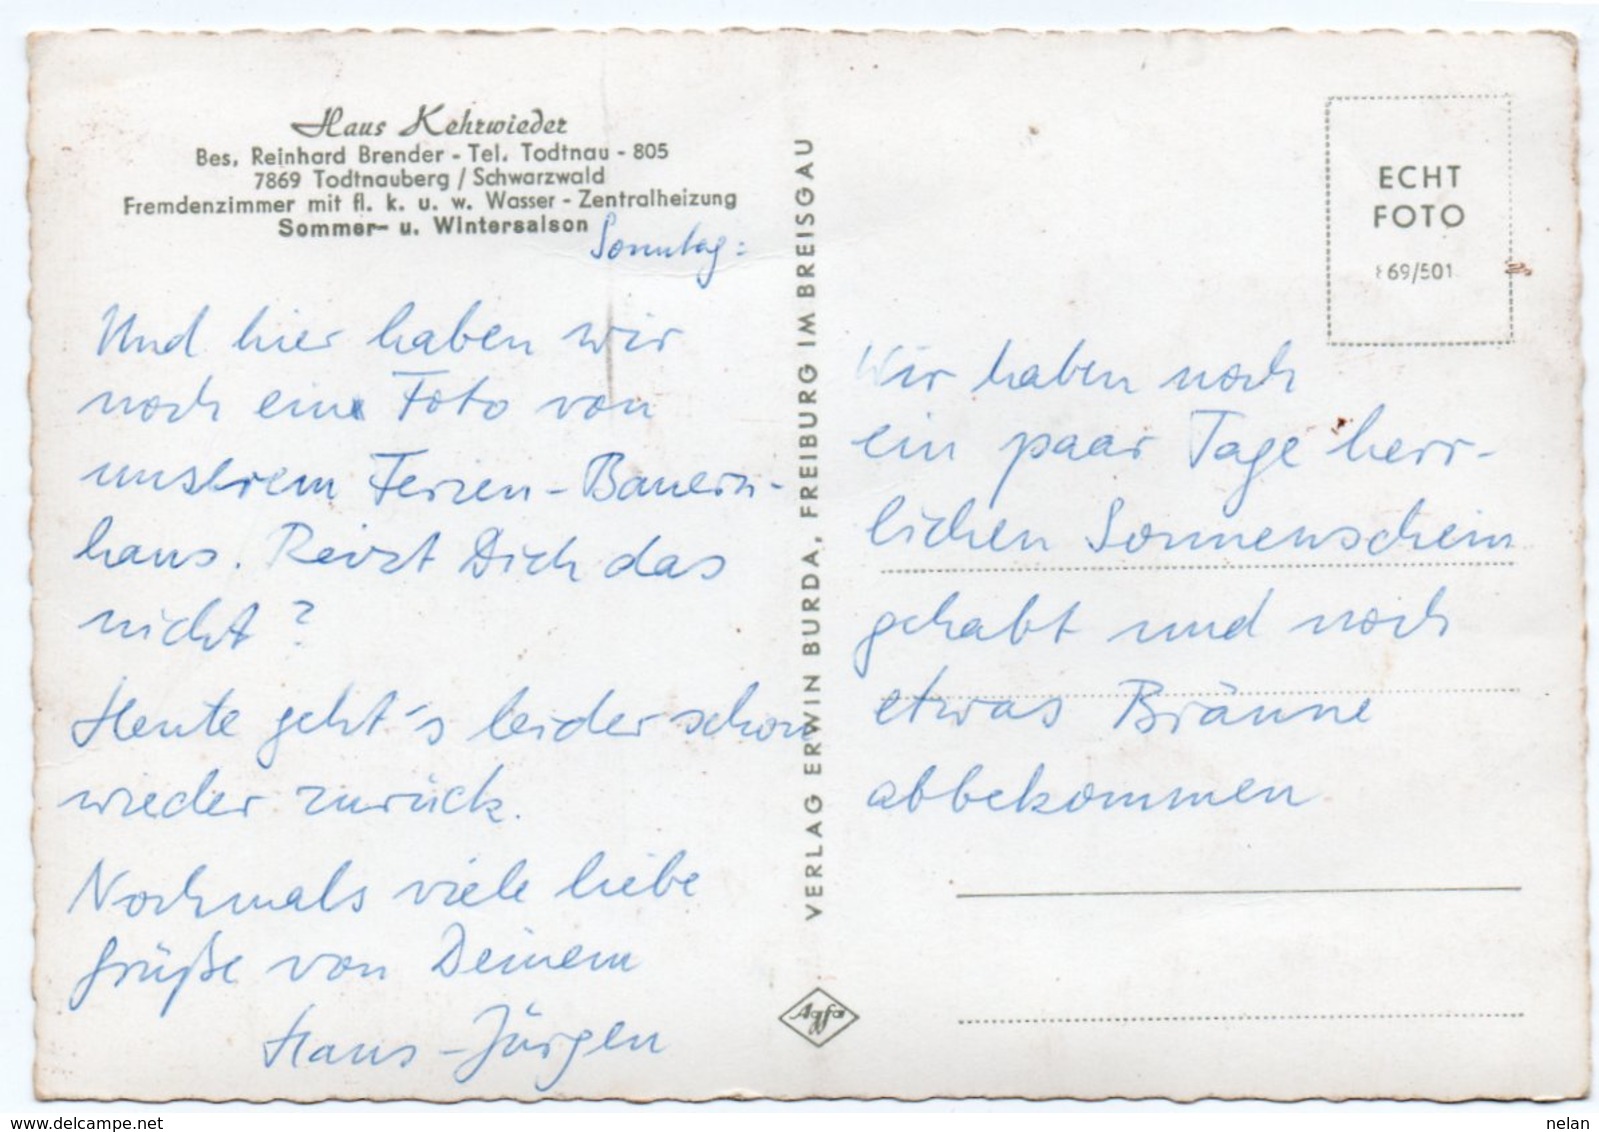 Haus Kehrwieder
Bes. Reinhard Brender - Tel. Todtnau - 805
7869 Todtnauberg / Schwarzwald
Fremdenzimmer mit fl. k. u. w. Wasser - Zentralheizung
Sommer- u. Wintersaison
Sonntag:
Und hier haben wir
noch eine Foto von
unserem Ferien-Bauern-
haus. Reizt Dich das
nicht?
Heute geht's leider schon
wieder zurück.
Nochmals viele liebe
Grüße von Deinem
Hans-Jürgen
VERLAG ERWIN BURDA, FREIBURG IM BREISGAU
Agfa
ECHT
FOTO
869/501
Wir haben noch
ein paar Tage herr-
lichen Sonnenschein
gehabt und noch
etwas Bräune
abbekommen
www.delcampe.net
nelan